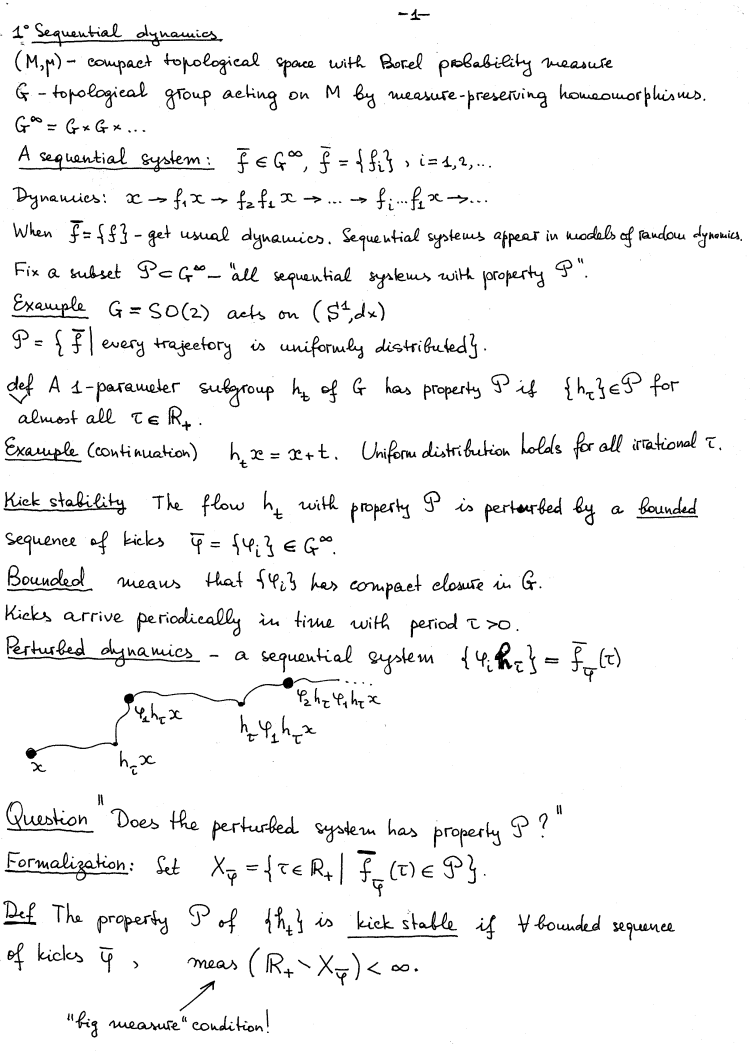 -1-
1° Sequential dynamics
(M,μ) - compact topological space with Borel probability measure
G - topological group acting on M by measure-preserving homeomorphisms.
G^∞ = G × G × ...
A sequential system: f̄ ∈ G^∞, f̄ = {f_i}, i = 1,2,...
Dynamics: x → f₁x → f₂f₁x → ... → f_i...f₁x → ...
When f̄ = {f} - get usual dynamics. Sequential systems appear in models of random dynamics.
Fix a subset 𝒫 ⊂ G^∞ - "all sequential systems with property 𝒫".
Example G = SO(2) acts on (S¹,dx)
𝒫 = { f̄ | every trajectory is uniformly distributed}.
def A 1-parameter subgroup h_t of G has property 𝒫 if {h_τ} ∈ 𝒫 for
almost all τ ∈ ℝ₊.
Example (continuation) h_t x = x + t. Uniform distribution holds for all irrational τ.
Kick stability The flow h_t with property 𝒫 is perturbed by a bounded
sequence of kicks φ̄ = {φ_i} ∈ G^∞.
Bounded means that {φ_i} has compact closure in G.
Kicks arrive periodically in time with period τ > 0.
Perturbed dynamics - a sequential system {φ_i h_τ} = f̄_φ̄(τ)
φ₁h_τx φ₂h_τφ₁h_τx ....
x h_τx h_τφ₁h_τx
Question "Does the perturbed system has property 𝒫?"
Formalization: Set X_φ̄ = {τ ∈ ℝ₊ | f̄_φ̄(τ) ∈ 𝒫}.
Def The property 𝒫 of {h_t} is kick stable if ∀ bounded sequence
of kicks φ̄, meas (ℝ₊ \ X_φ̄) < ∞.
"big measure" condition!